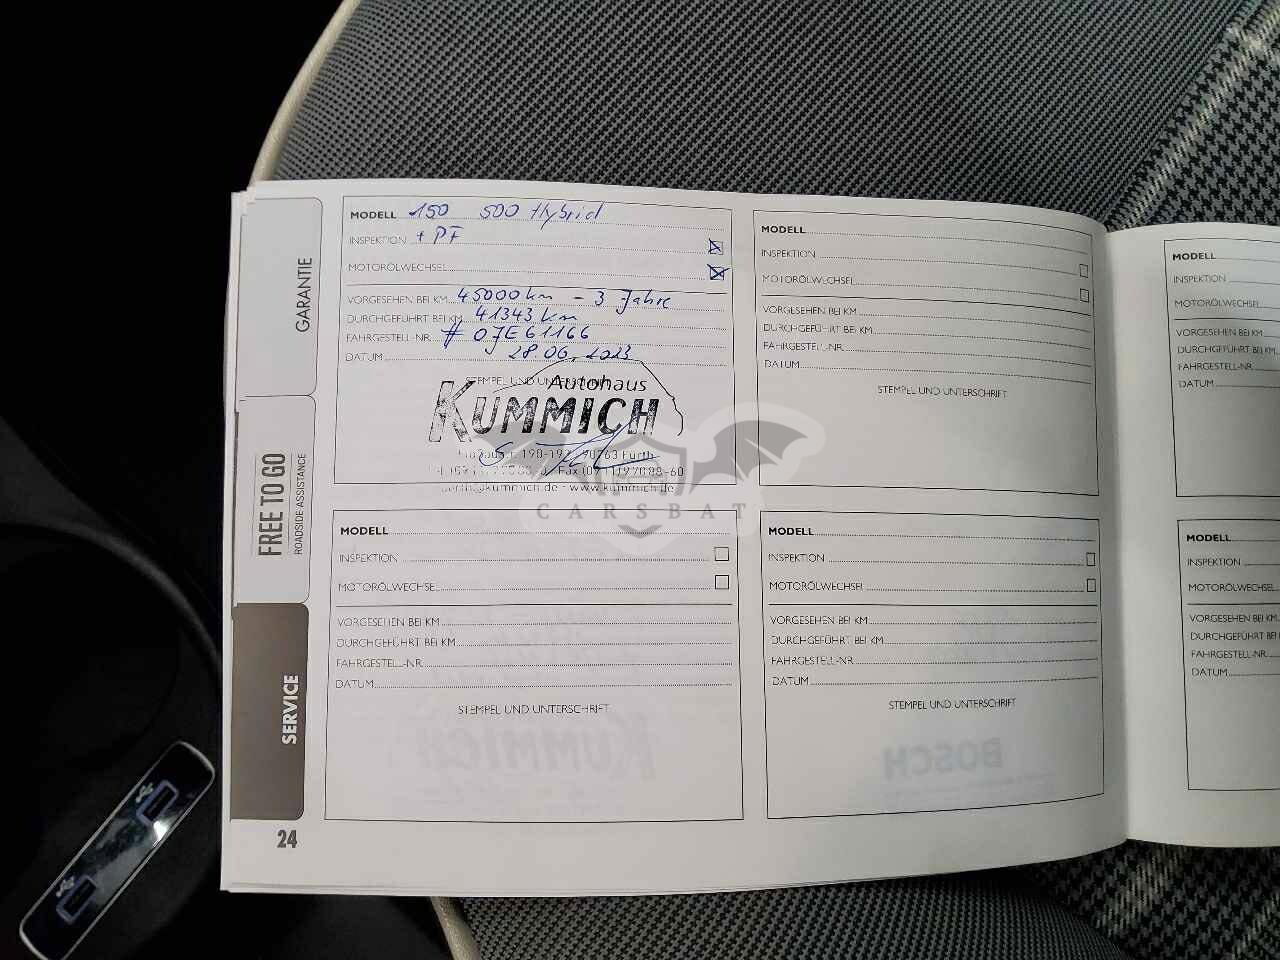 GARANTIE
FREE TO GO
ROADSIDE ASSISTANCE
SERVICE
24
MODELL 150 500 Hybrid
INSPEKTION + PF
MOTORÖLWECHSEL
VORGESEHEN BEI KM 45000 km - 3 Jahre
DURCHGEFÜHRT BEI KM 41343 km
FAHRGESTELL-NR. # 07E61166
DATUM 28.06.2023
STEMPEL UND UNTERSCHRIFT
Autohaus
KUMMICH
190-192 90763 Fürth
Fax (0911) 97088-60
kummich.de - www.kummich.de
CARSBAT
MODELL
INSPEKTION
MOTORÖLWECHSEL
VORGESEHEN BEI KM
DURCHGEFÜHRT BEI KM
FAHRGESTELL-NR.
DATUM
STEMPEL UND UNTERSCHRIFT
MODELL
INSPEKTION
MOTORÖLWECHSEL
VORGESEHEN BEI KM
DURCHGEFÜHRT BEI KM
FAHRGESTELL-NR.
DATUM
MODELL
INSPEKTION
MOTORÖLWECHSEL
VORGESEHEN BEI KM
DURCHGEFÜHRT BEI KM
FAHRGESTELL-NR.
DATUM
STEMPEL UND UNTERSCHRIFT
KUMMICH
MODELL
INSPEKTION
MOTORÖLWECHSEL
VORGESEHEN BEI KM
DURCHGEFÜHRT BEI KM
FAHRGESTELL-NR
DATUM
STEMPEL UND UNTERSCHRIFT
BOSCH
MODELL
INSPEKTION
MOTORÖLWECHSEL
VORGESEHEN BEI KM
DURCHGEFÜHRT BEI KM
FAHRGESTELL-NR.
DATUM